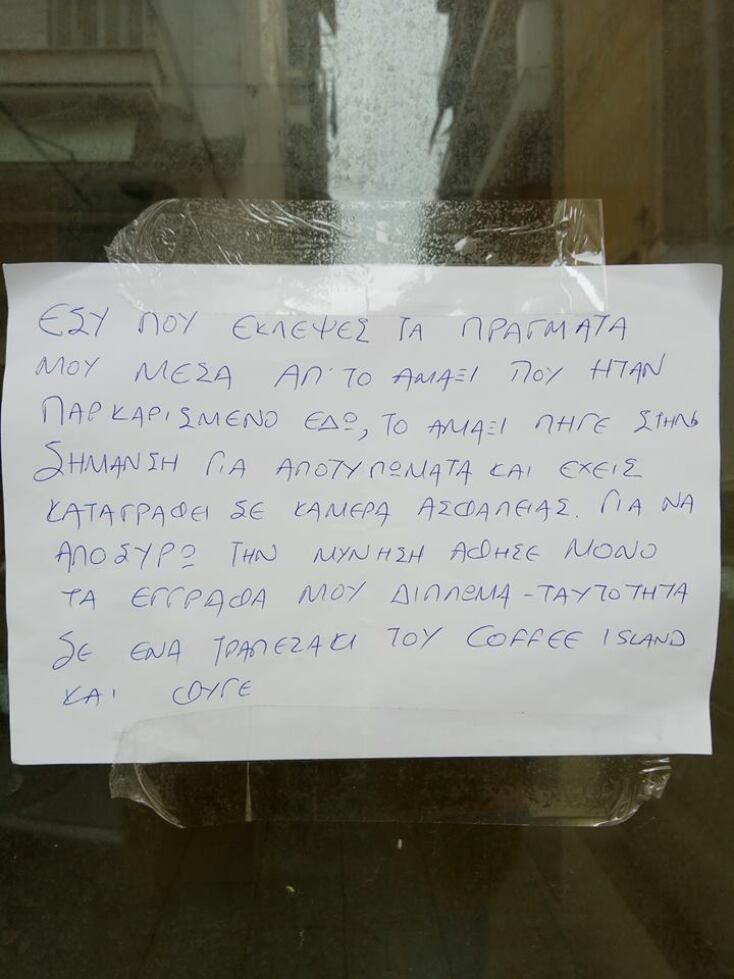 ΕΣΥ ΠΟΥ ΕΚΛΕΨΕΣ ΤΑ ΠΡΑΓΜΑΤΑ
ΜΟΥ ΜΕΣΑ ΑΠ' ΤΟ ΑΜΑΞΙ ΠΟΥ ΗΤΑΝ
ΠΑΡΚΑΡΙΣΜΕΝΟ ΕΔΩ, ΤΟ ΑΜΑΞΙ ΠΗΓΕ ΣΤΗΝ
ΣΗΜΑΝΣΗ ΓΙΑ ΑΠΟΤΥΠΩΜΑΤΑ ΚΑΙ ΕΧΕΙΣ
ΚΑΤΑΓΡΑΦΕΙ ΣΕ ΚΑΜΕΡΑ ΑΣΦΑΛΕΙΑΣ. ΓΙΑ ΝΑ
ΑΠΟΣΥΡΩ ΤΗΝ ΜΥΝΗΣΗ ΑΦΗΣΕ ΜΟΝΟ
ΤΑ ΕΓΓΡΑΦΑ ΜΟΥ ΔΙΠΛΩΜΑ - ΤΑΥΤΟΤΗΤΑ
ΣΕ ΕΝΑ ΤΡΑΠΕΖΑΚΙ ΤΟΥ COFFEE ISLAND
ΚΑΙ ΦΥΓΕ